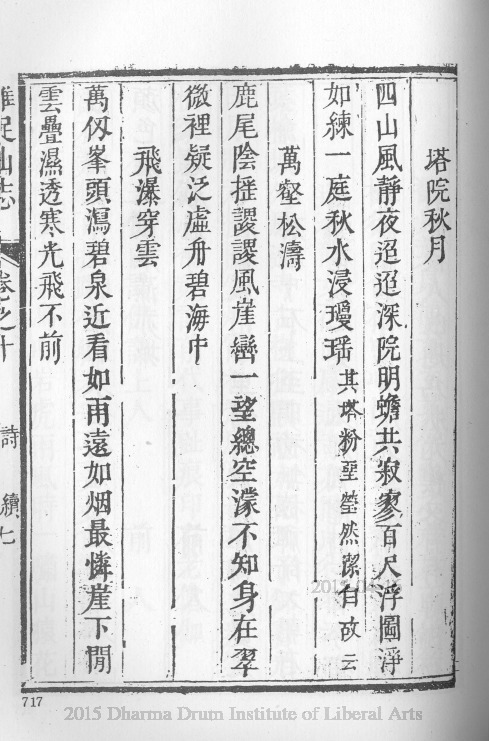 塔院秋月
四山風靜夜迢迢深院明蟾共寂寥百尺浮圖淨
如練一庭秋水浸瓊瑤其塔粉堊瑩然潔白故云
萬壑松濤
鹿尾陰搓謖謖風崖巒一望總空濛不知身在翠
微裡疑泛虛舟碧海中
飛瀑穿雲
萬仭峯頭瀉碧泉近看如雨遠如烟最憐崖下閒
雲疊濕透寒光飛不前
雞足山志 卷之十 詩 續七
717
2015 Dharma Drum Institute of Liberal Arts